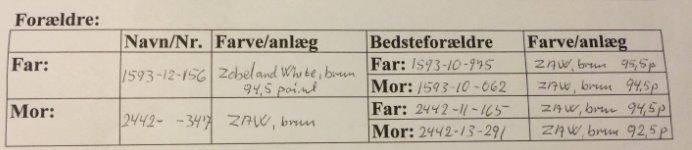 Forældre:
Navn/Nr. Farve/anlæg Bedsteforældre Farve/anlæg
Far: 1593-12-156 Zobel and White, brun 94,5 point Far: 1593-10-975 ZAW, brun 95,5p
Mor: 1593-10-062 ZAW, brun 94,5p
Mor: 2442- -347 ZAW, brun Far: 2442-11-165 ZAW, brun 94,5p
Mor: 2442-13-291 ZAW, brun 92,5p